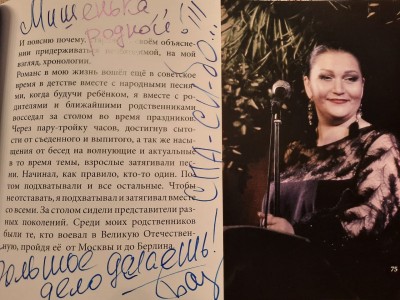 Мишенька
родной!!!
И поясню почему, объясне-
нии придерживать на мой
взгляд, хронологии.
Романс в мою жизнь вошёл ещё в советское
время в детстве вместе с народными песня-
ми, когда будучи ребёнком, я вместе с ро-
дителями и ближайшими родственниками
восседал за столом во время праздников.
Через пару-тройку часов, достигнув сытос-
ти от съеденного и выпитого, а так же насы-
щения от бесед на волнующие и актуальные
в то время темы, взрослые затягивали пес-
ни. Начинал, как правило, кто-то один. По-
том подхватывали и все остальные. Чтобы
не отставать, я подхватывал и затягивал вместе
со всеми. За столом сидели представители раз-
ных поколений. Среди моих родственников
были те, кто воевал в Великую Отечествен-
ную, пройдя её от Москвы и до Берлина.
СПА-СИ-БО!!!
Большое
дело делаешь!
75